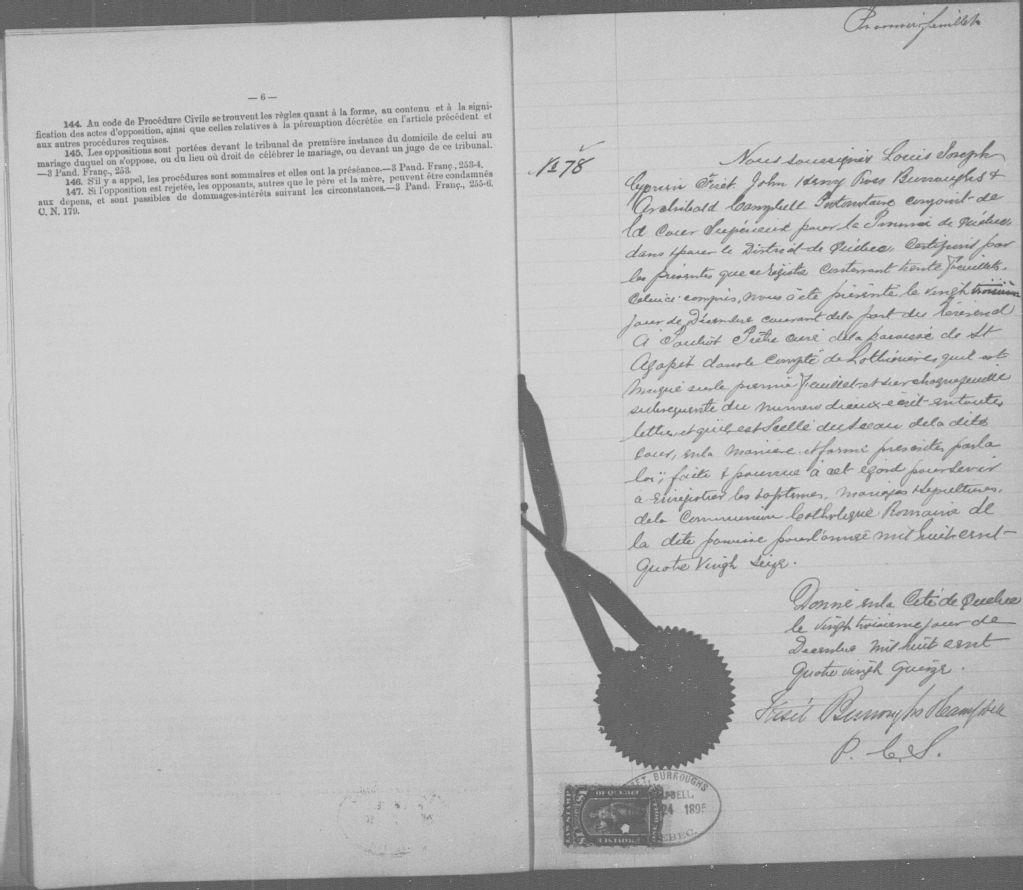 — 6 —
144. Au code de Procédure Civile se trouvent les règles quant à la forme, au contenu et à la signi-
fication des actes d'opposition, ainsi que celles relatives à la péremption décrétée en l'article précédent et
aux autres procédures requises.
145. Les oppositions sont portées devant le tribunal de première instance du domicile de celui au
mariage duquel on s'oppose, ou du lieu où droit de célébrer le mariage, ou devant un juge de ce tribunal.
—3 Pand. Franç., 253.
146. S'il y a appel, les procédures sont sommaires et elles ont la préséance.—3 Pand. Franç., 253-4.
147. Si l'opposition est rejetée, les opposants, autres que le père et la mère, peuvent être condamnés
aux dépens, et sont passibles de dommages-intérêts suivant les circonstances.—3 Pand. Franç., 255-6.
C. N. 179.
Premier feuillet
No 78
Nous soussignés Louis Joseph
Cyprien Fiset, John Henry Ross Burroughs &
Archibald Campbell Protonotaire conjoint de
la Cour Supérieure pour la Province de Québec,
dans & pour le District de Québec, Certifions par
les présentes que ce Régistre contenant trente feuillets,
Celui-ci compris, nous a été présenté le vingt troisième
jour de Décembre courant de la part du Révérend
A Pouliot Prêtre curé de la paroisse de St
Agapit dans le Compté de Lotbinière, qu'il est
Marqué sur le premier feuillet et sur chaque feuille
subsequente du numero d'iceux écrit en toutes
lettres et qu'il est Scellé du Sceau de la dite
Cour, en la manière et forme prescrites par la
loi, faite & pourvue à cet égard pour servir
a enrégistrer les baptemes, mariages & sepultures,
de la Communion Catholique Romaine de
la dite paroisse pour l'année mil huit cent
quatre vingt seize.
Donné en la Cité de Québec
le vingt troisieme jour de
Decembre mil huit cent
quatre vingt quinze.
Fiset Burroughs & Campbell
P. C. S.
ET, BURROUGHS
PBELL,
24 1895
EBEC.
LAW STAMP
OF QUEBEC
ONE DOLLAR
$1